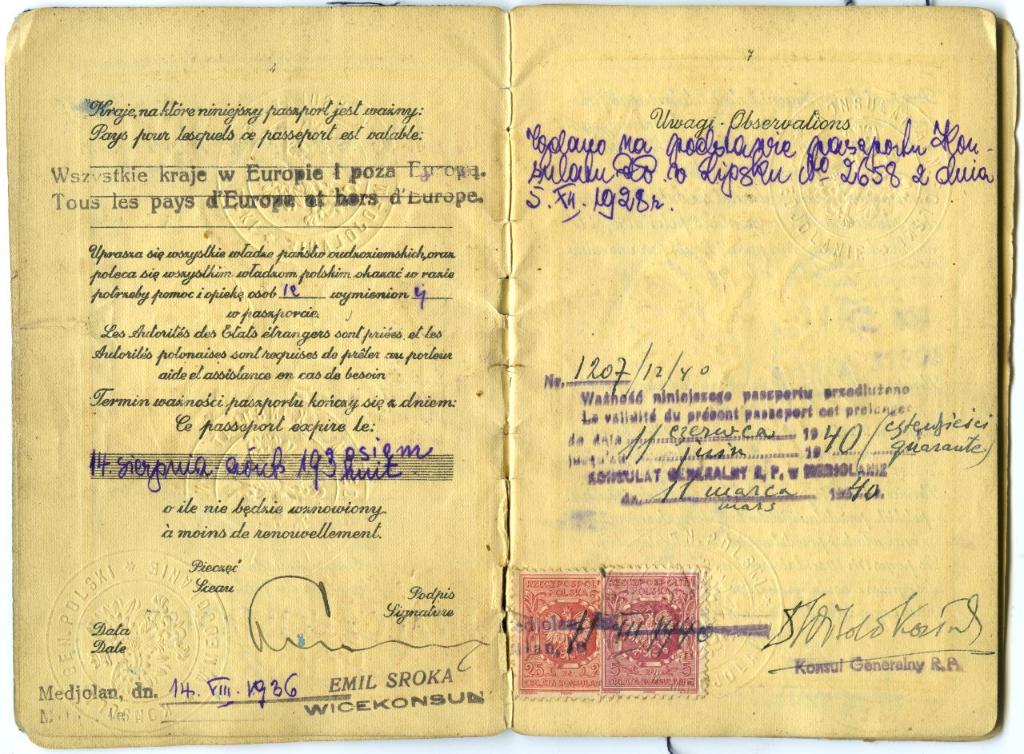 4
Kraje, na które niniejszy paszport jest ważny:
Pays pour lesquels ce passeport est valable:
Wszystkie kraje w Europie i poza Europą.
Tous les pays d'Europe et hors d'Europe.
Uprasza się wszystkie władze państw cudzoziemskich, oraz
poleca się wszystkim władzom polskim okazać w razie
potrzeby pomoc i opiekę osobie wymienionej
w paszporcie.
Les Autorités des Etats étrangers sont priées, et les
Autorités polonaises sont requises de prêter au porteur
aide et assistance en cas de besoin
Termin ważności paszportu kończy się z dniem:
Ce passeport expire le:
14 sierpnia août 193 osiem
huit
o ile nie będzie wznowiony
à moins de renouvellement.
Pieczęć
Sceau
Podpis
Signature
Data
Date
Medjolan, dn. 14. VIII. 1936
EMIL SROKA
WICEKONSUL
7
Uwagi - Observations
Wydano na podstawie paszportu Kon-
sulatu RP w Lipsku No 2658 z dnia
5. XII. 1928 r.
Nr. 1207/12/40
Ważność niniejszego paszportu przedłużono
La validité du présent passeport est prolongée
do dnia 11 czerwca 1940 (czterdzieści
jusqu'au 11 juin 1940 quarante)
KONSULAT GENERALNY R. P. w MEDJOLANIE
dn. 11 marca 1940.
mars
RZECZPOSPOLITA
POLSKA
25 2
RZECZPOSPOLITA
POLSKA
5 5
Medjolan, 11 III 1940
Konsul Generalny R.P.